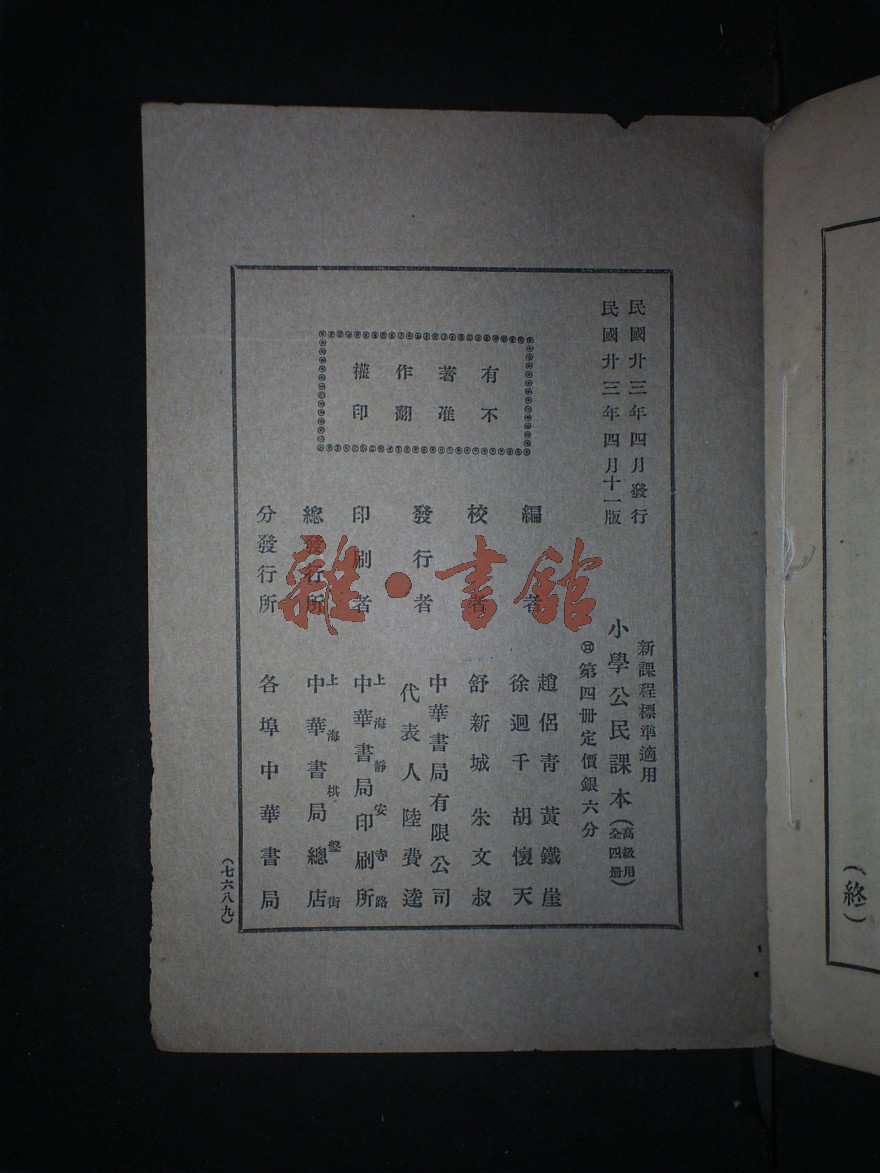 民國廿三年四月發行
民國廿三年四月十一版
新課程標準適用
小學公民課本(高級用 全四册)
第四册定價銀六分
有著作權
不准翻印
編者
趙侶青 黃鐵崖
徐迥千 胡懷天
校者
舒新城 朱文叔
發行者
中華書局有限公司
代表人 陸費逵
印刷者
上海靜安寺路
中華書局印刷所
總發行所
上海棋盤街
中華書局總店
分發行所
各埠中華書局
(七六八九)
(終)
雜·書館